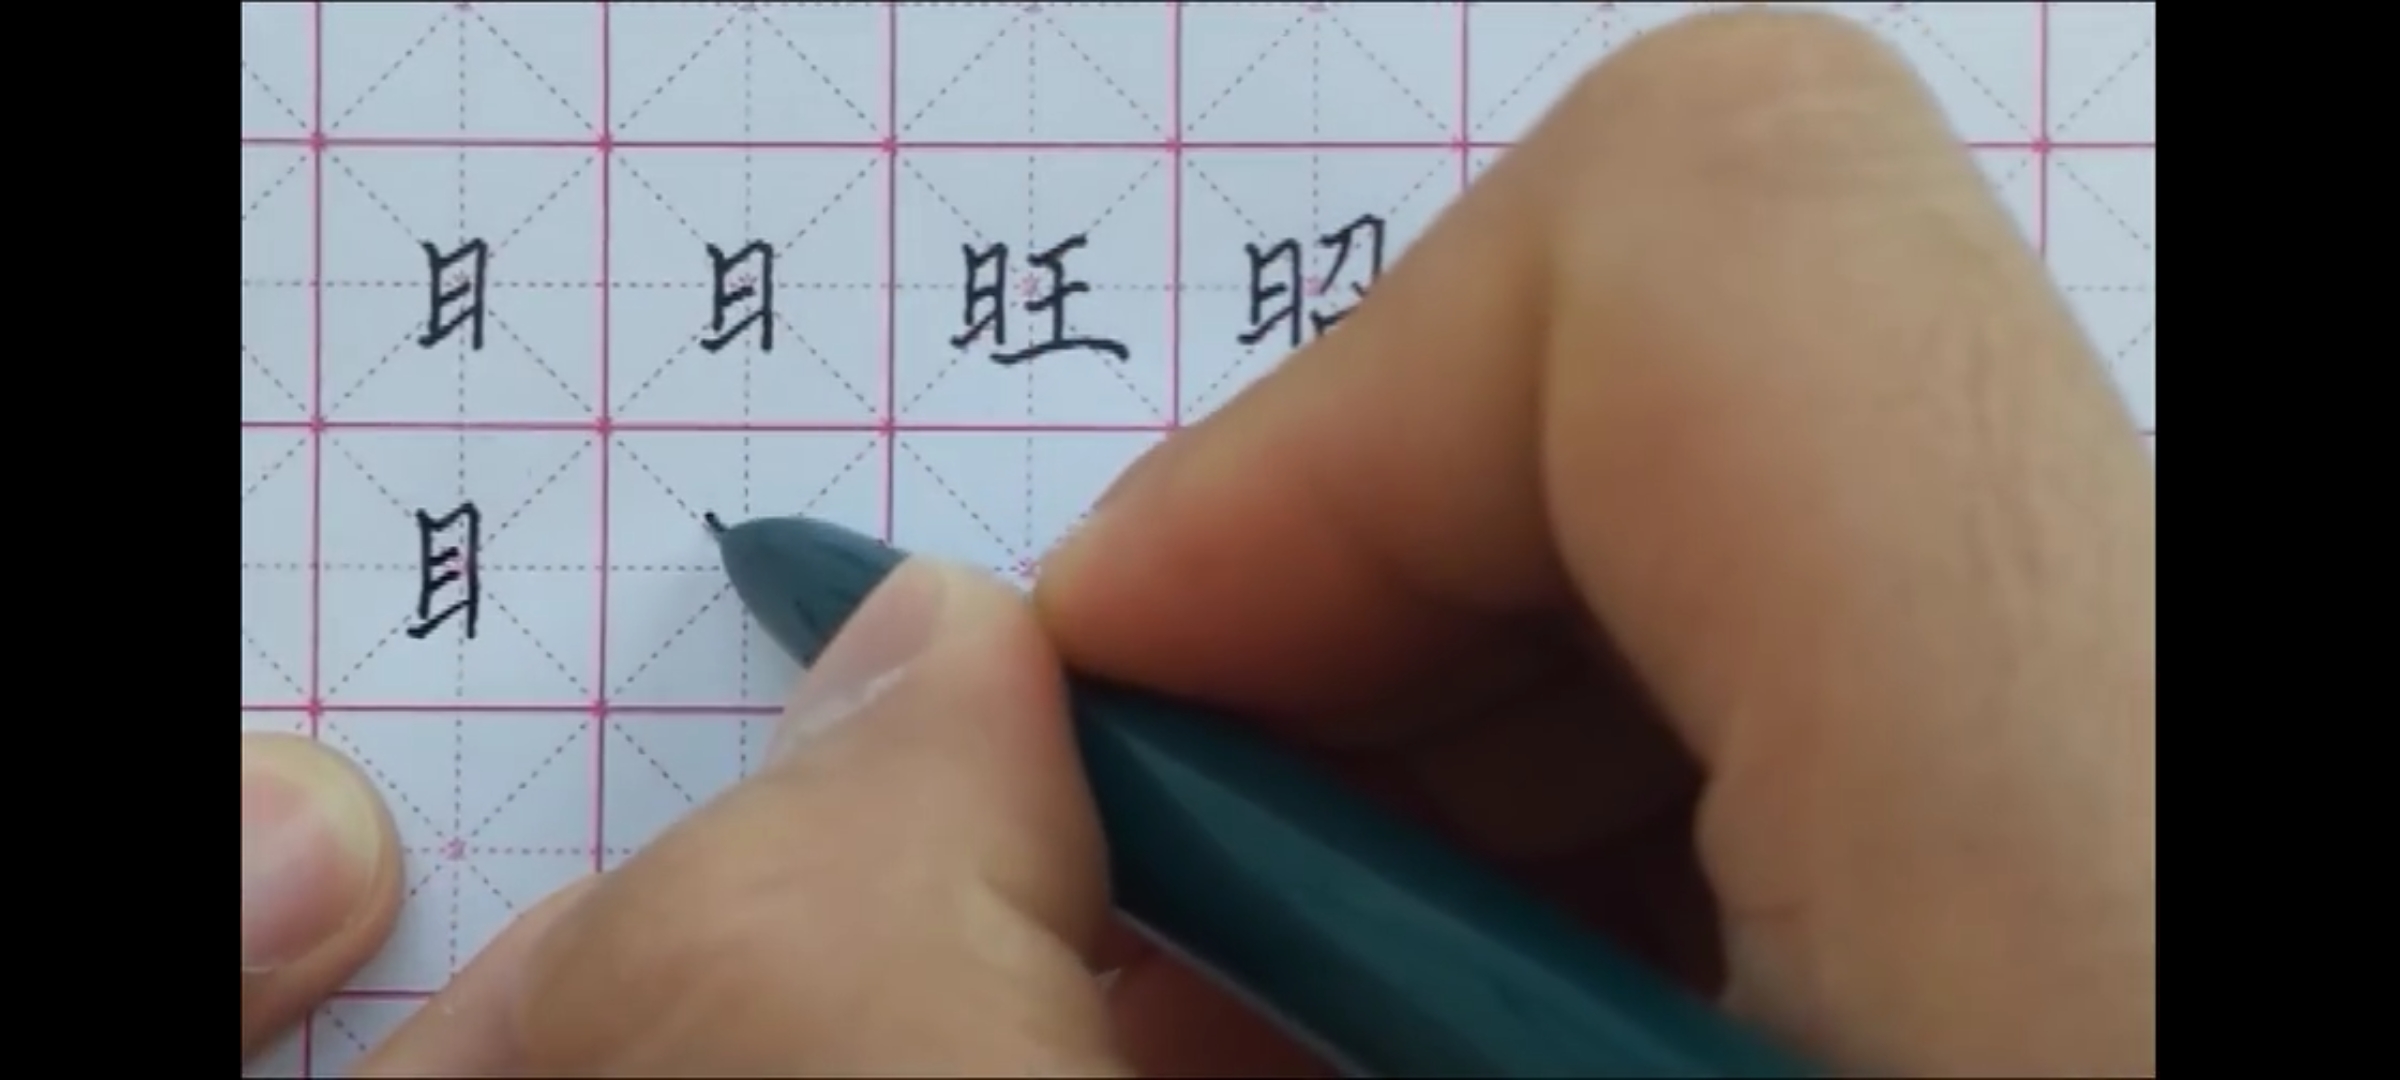 日 日 旺 昭
目